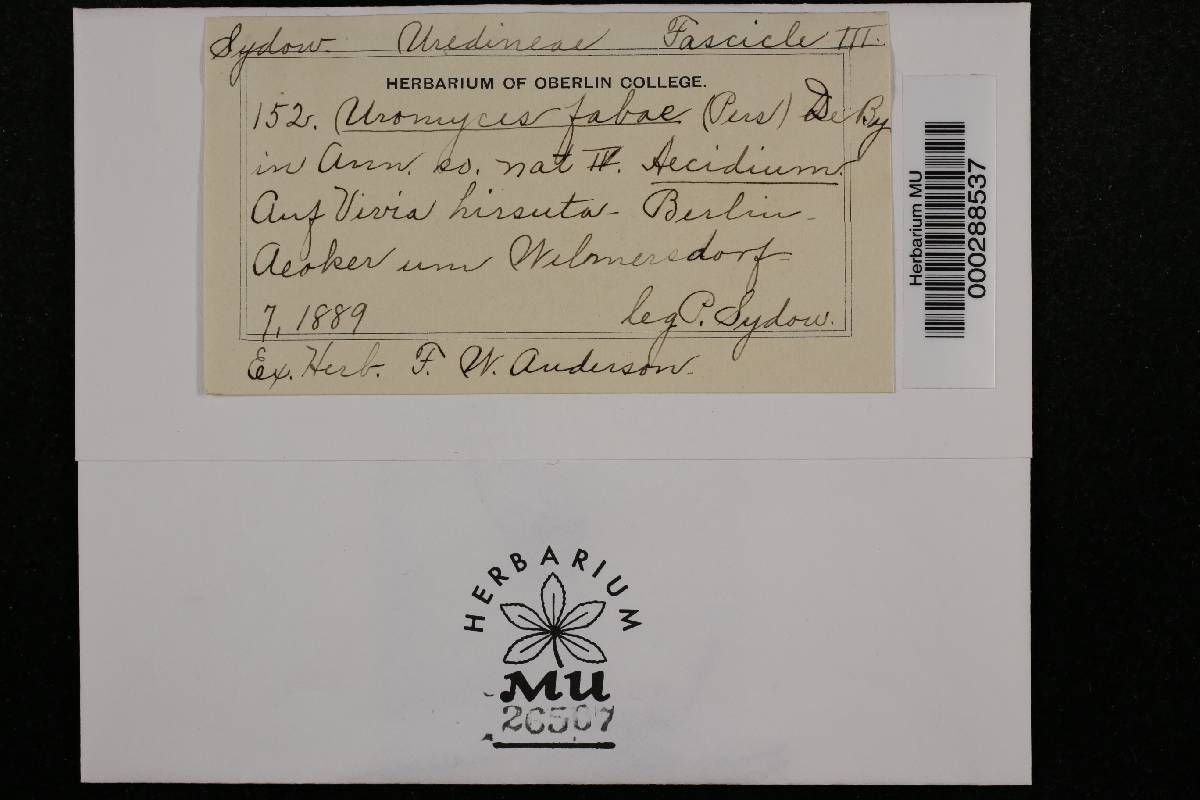 Sydow. Uredineae Fascicle III.
HERBARIUM OF OBERLIN COLLEGE.
152. Uromyces fabae. (Pers) De By
in Ann. sc. nat IV. Aecidium.
Auf Vivia hirsuta - Berlin -
Aecker um Wilmersdorf -
7, 1889 leg P. Sydow.
Ex. Herb. F. W. Anderson.
Herbarium MU
000288537
HERBARIUM
MU
26507